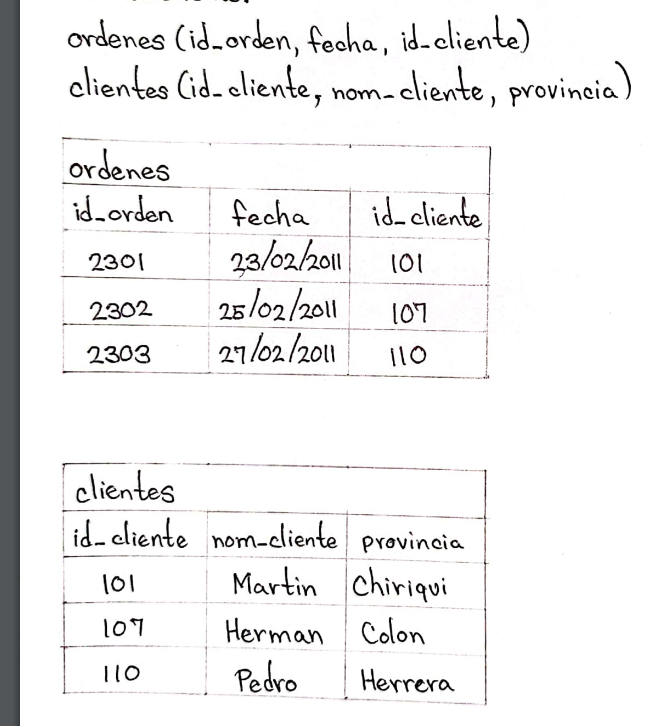 ordenes (id_orden, fecha, id_cliente)
clientes (id_cliente, nom_cliente, provincia)
ordenes
id_orden fecha id_cliente
2301 23/02/2011 101
2302 25/02/2011 107
2303 27/02/2011 110
clientes
id_cliente nom_cliente provincia
101 Martin Chiriqui
107 Herman Colon
110 Pedro Herrera